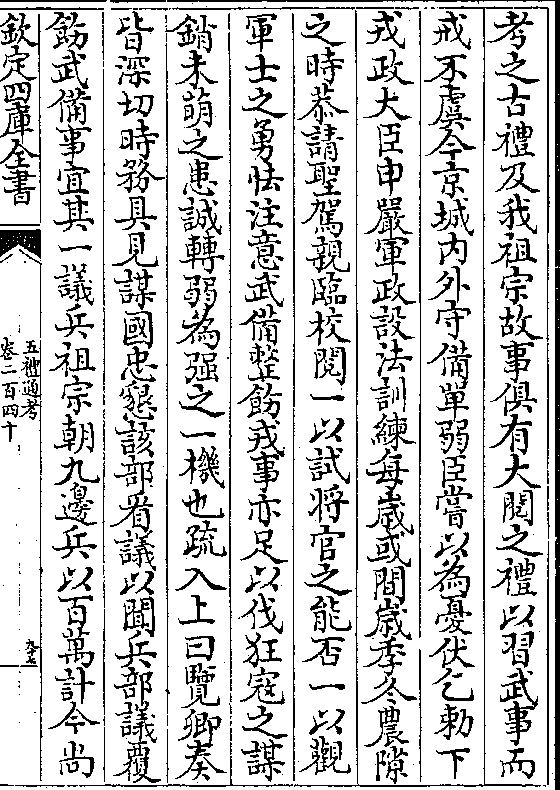 考之古禮及我祖宗故事俱有大閱之禮以習武事而
戒不虞今京城内外守備單弱臣嘗以為憂伏乞勅下
戎政大臣申嚴軍政設法訓練每嵗或間嵗季冬農隙
之時恭請聖駕親臨校閱一以試将官之能否一以觀
軍士之勇怯注意武備整飭戎事亦足以伐狂寇之謀
銷未萌之患誠轉弱為强之一機也疏入上曰覽卿奏
皆深切時務具見謀國忠懇該部看議以聞兵部議覆
飭武備事宜其一議兵祖宗朝九邊兵以百萬計今尚
欽定四庫全書
五禮通考
卷二百四十